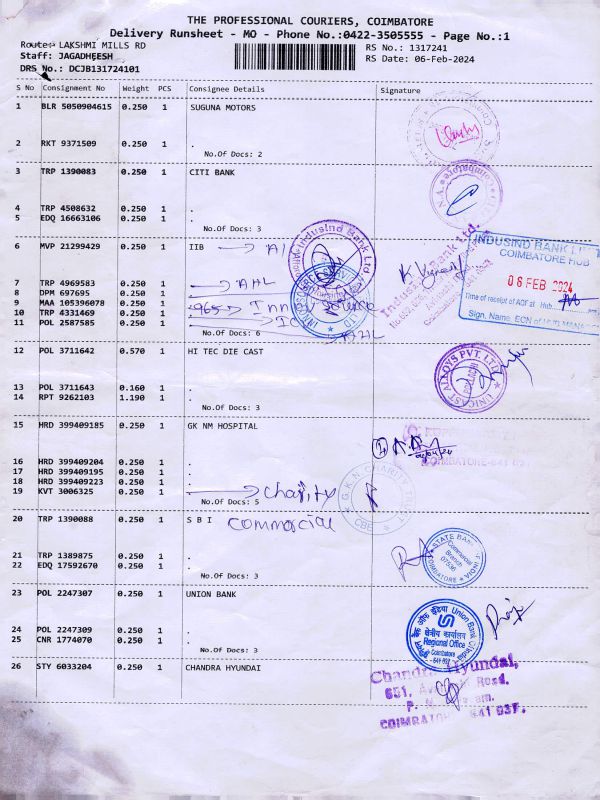 THE PROFESSIONAL COURIERS, COIMBATORE
Delivery Runsheet - MO - Phone No.:0422-3505555 - Page No.:1
Route: LAKSHMI MILLS RD
RS No.: 1317241
Staff: JAGADHEESH
RS Date: 06-Feb-2024
DRS No.: DCJB131724101
S No Consignment No Weight PCS Consignee Details Signature
1 BLR 5050904615 0.250 1 SUGUNA MOTORS
2 RKT 9371509 0.250 1 .
No.Of Docs: 2
3 TRP 1390083 0.250 1 CITI BANK
4 TRP 4508632 0.250 1 .
5 EDQ 16663106 0.250 1 .
No.Of Docs: 3
6 MVP 21299429 0.250 1 IIB
IndusInd Bank Ltd
INDUSIND BANK LT
COIMBATORE HUB
06 FEB 2024
Time of receipt of AOF at Hub
7 TRP 4969583 0.250 1 . AHL
8 DPM 697695 0.250 1 .
9 MAA 105396078 0.250 1 .
10 TRP 4331469 0.250 1 .
11 POL 2587585 0.250 1 .
No.Of Docs: 6
12 POL 3711642 0.570 1 HI TEC DIE CAST
UNICAST ALLOYS PVT. LTD.
13 POL 3711643 0.160 1 .
14 RPT 9262103 1.190 1 .
No.Of Docs: 3
15 HRD 399409185 0.250 1 GK NM HOSPITAL
16 HRD 399409204 0.250 1 .
17 HRD 399409195 0.250 1 .
18 HRD 399409223 0.250 1 .
19 KVT 3006325 0.250 1 . charity
No.Of Docs: 5
G.K.N CHARITY TRUST
CBE
20 TRP 1390088 0.250 1 S B I
commercial
STATE BANK OF INDIA
Commercial
Branch
07536
COIMBATORE
21 TRP 1389875 0.250 1 .
22 EDQ 17592670 0.250 1 .
No.Of Docs: 3
23 POL 2247307 0.250 1 UNION BANK
Union Bank of India
क्षेत्रीय कार्यालय
Regional Office
Coimbatore
24 POL 2247309 0.250 1 .
25 CNR 1774070 0.250 1 .
No.Of Docs: 3
26 STY 6033204 0.250 1 CHANDRA HYUNDAI
Chandra Hyundai,
COIMBATORE 641 037.